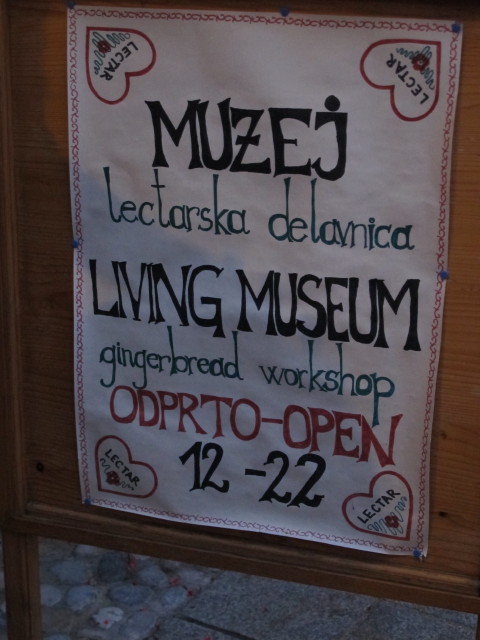 LECTAR
LECTAR
MUZEJ
lectarska delavnica
LIVING MUSEUM
gingerbread workshop
ODPRTO-OPEN
12-22
LECTAR
LECTAR